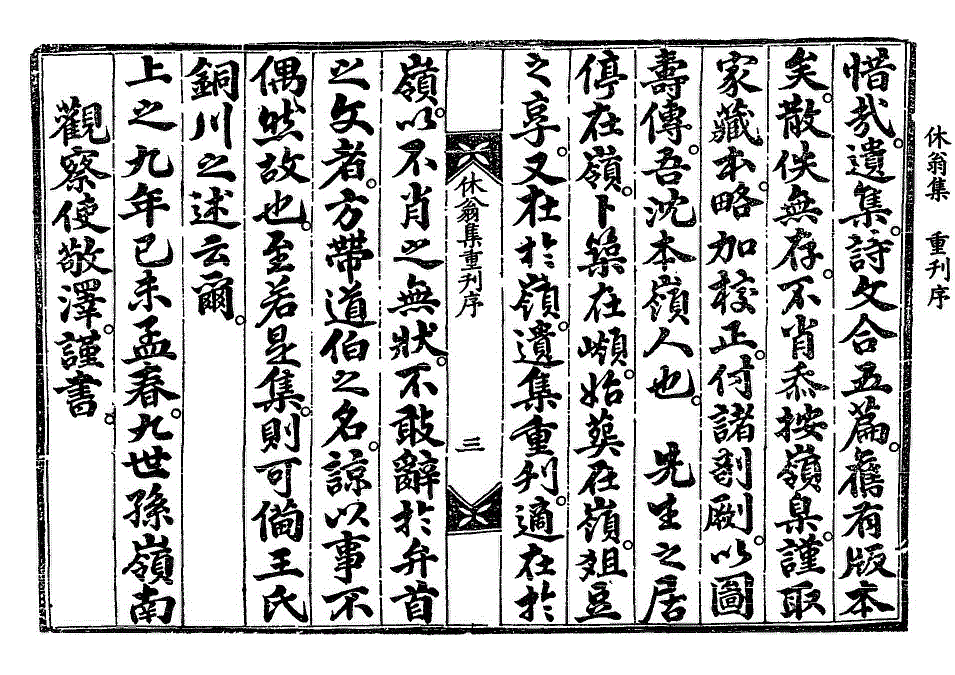 休翁集 重刋序
惜哉。遺集。詩文合五篇。舊有版本
矣。散佚無存。不肖忝按嶺臬。謹取
家藏本。略加校正。付諸剞劂。以圖
壽傳。吾沈本嶺人也。 先生之居
停在嶺。卜築在嶺。始葬在嶺。俎豆
之享。又在於嶺。遺集重刋。適在於
休翁集重刋序 三
嶺。以不肖之無狀。不敢辭於弁首
之文者。方帶道伯之名。諒以事不
偶然故也。至若是集。則可備王氏
銅川之述云爾。
上之九年己未孟春。九世孫嶺南
觀察使敬澤。謹書。